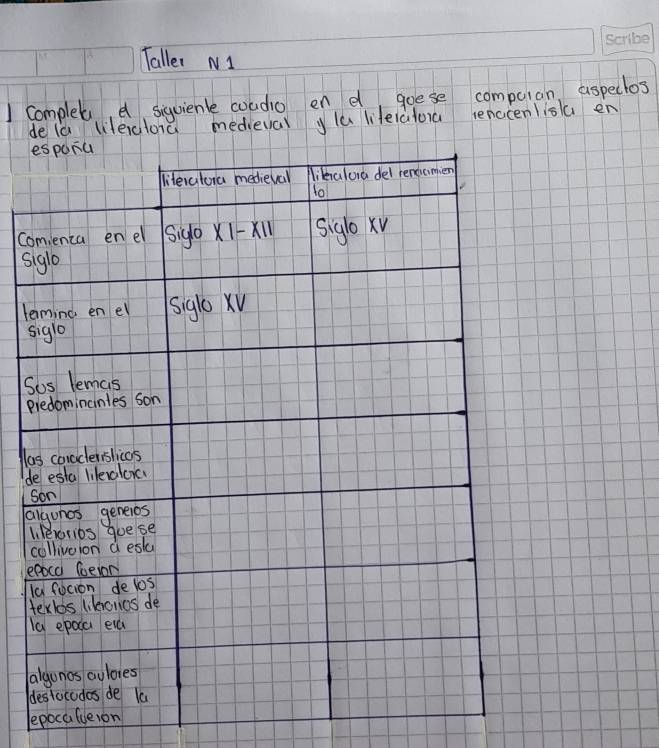 Scribe
Taller N1
1 Completa el siguiente cuadro en el que se comparan aspectos
de la literatura medieval y la literatura renacentista en
españa
literatura medieval literatura del renacimien
to
Comienza en el Siglo XI-XII Siglo XV
siglo
termina en el Siglo XV
siglo
Sus temas
predominantes son
las caracteristicas
de esta literatura
son
algunos generos
literarios que se
cultivaron a esta
epoca fueron
la fucion de los
textos literarios de
la epoca era
algunos autores
destacados de la
epoca fueron